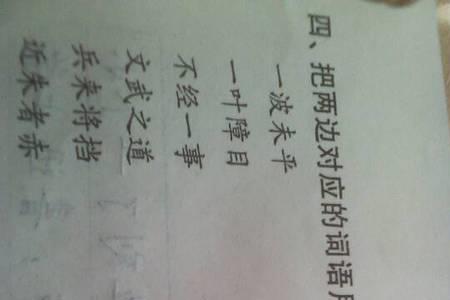 四、把两边对应的词语用
一波未平
一叶障目
不经一事
文武之道
兵来将挡
近朱者赤